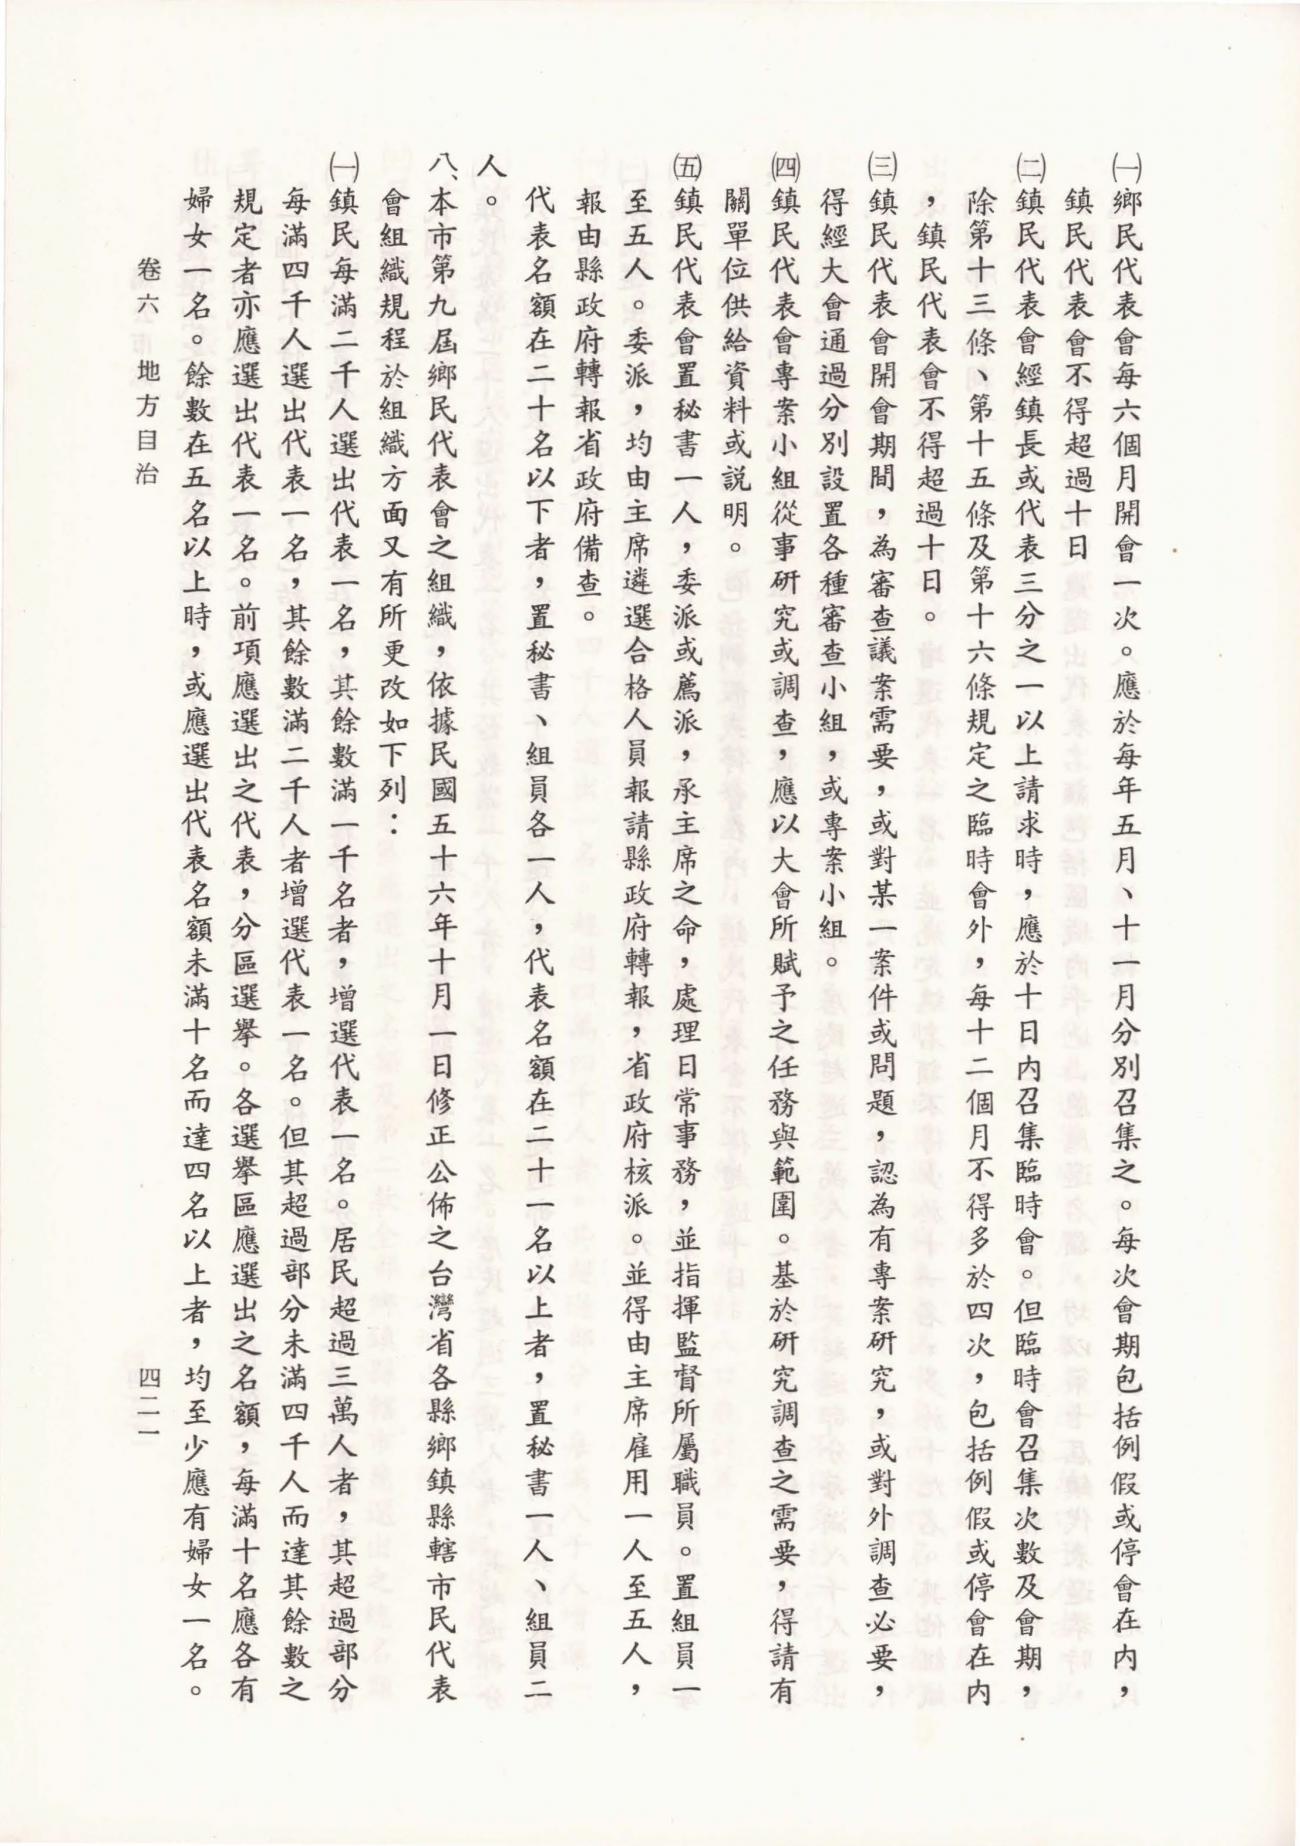 ㈠鄉民代表會每六個月開會一次。應於每年五月、十一月分別召集之。每次會期包括例假或停會在內，
鎮民代表會不得超過十日
㈡鎮民代表會經鎮長或代表三分之一以上請求時，應於十日內召集臨時會。但臨時會召集次數及會期，
除第十三條、第十五條及第十六條規定之臨時會外，每十二個月不得多於四次，包括例假或停會在內
，鎮民代表會不得超過十日。
㈢鎮民代表會開會期間，為審查議案需要，或對某一案件或問題，認為有專案研究，或對外調查必要，
得經大會通過分別設置各種審查小組，或專案小組。
㈣鎮民代表會專案小組從事研究或調查，應以大會所賦予之任務與範圍。基於研究調查之需要，得請有
關單位供給資料或説明。
㈤鎮民代表會置秘書一人，委派或薦派，承主席之命，處理日常事務，並指揮監督所屬職員。置組員一
至五人。委派，均由主席遴選合格人員報請縣政府轉報，省政府核派。並得由主席雇用一人至五人，
報由縣政府轉報省政府備查。
代表名額在二十名以下者，置秘書、組員各一人，代表名額在二十一名以上者，置秘書一人、組員二
人。
八、本市第九屆鄉民代表會之組織，依據民國五十六年十月一日修正公佈之台灣省各縣鄉鎮縣轄市民代表
會組織規程於組織方面又有所更改如下列：
㈠鎮民每滿二千人選出代表一名，其餘數滿一千名者，增選代表一名。居民超過三萬人者，其超過部分
每滿四千人選出代表一名，其餘數滿二千人者增選代表一名。但其超過部分未滿四千人而達其餘數之
規定者亦應選出代表一名。前項應選出之代表，分區選舉。各選舉區應選出之名額，每滿十名應各有
婦女一名。餘數在五名以上時，或應選出代表名額未滿十名而達四名以上者，均至少應有婦女一名。
卷六　地方自治
四二一